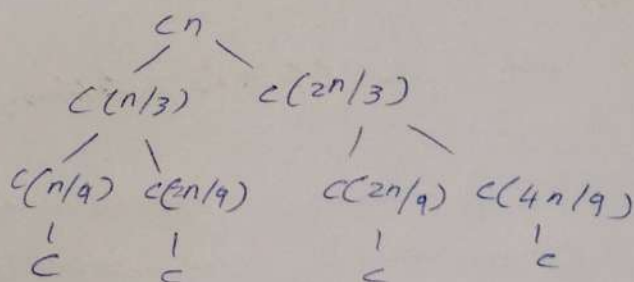 cn
C(n/3) c(2n/3)
C(n/9) c(2n/9) C(2n/9) c(4n/9)
C C C C